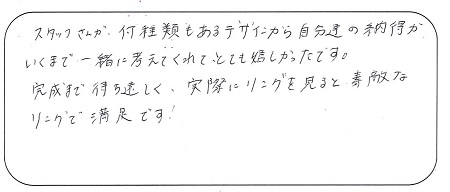 スタッフさんが、何種類もあるデザインから自分達の納得が
いくまで一緒に考えてくれて、とても嬉しかったです。
完成まで待ち遠しく、実際にリングを見ると素敵な
リングで満足です!